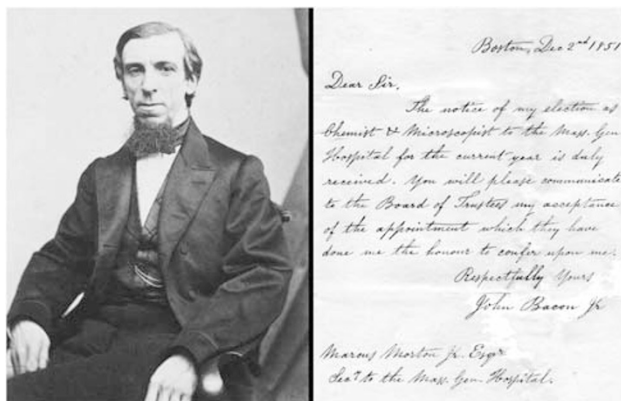 Boston, Dec 2nd 1851
Dear Sir,
The notice of my election as
Chemist & Microscopist to the Mass. Gen
Hospital for the current year is duly
received. You will please communicate
to the Board of Trustees my acceptance
of the appointment which they have
done me the honour to confer upon me.
Respectfully Yours
John Bacon Jr
Marcus Morton Jr. Esqr
Secy to the Mass. Gen. Hospital.